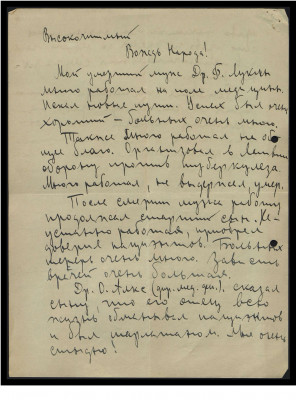 Высокочтимый
Вождь Народа!
Мой умерший муж Др. Б. Лукин
много работал на поле медицины.
Искал новые пути. Успех был очень
хороший – больных очень много.
Также много работал на об-
щее благо. Организовал в Латвии
оборону против туберкулеза.
Много работал, не выдержал, умер.
После смерти мужа работу
продолжал старший сын. Не-
устанно работая, приобрел
доверия пациентов. Больных
теперь очень много. Зависть
врачей очень большая.
Др. О. Алкс (дир. мед. деп.) сказал
сыну, что его отец всю
жизнь обманывал пациентов
и был шарлатаном. Мне очень
стыдно!